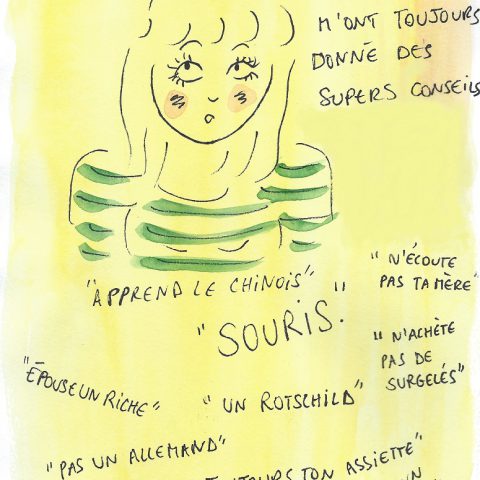 M'ONT TOUJOURS
DONNÉ DES
SUPERS CONSEILS
"APPREND LE CHINOIS"
"N'ÉCOUTE
PAS TA MÈRE"
"SOURIS."
"N'ACHÈTE
PAS DE
SURGELÉS"
"ÉPOUSE UN RICHE"
"UN ROTSCHILD"
"PAS UN ALLEMAND"
TON ASSIETTE"
UN